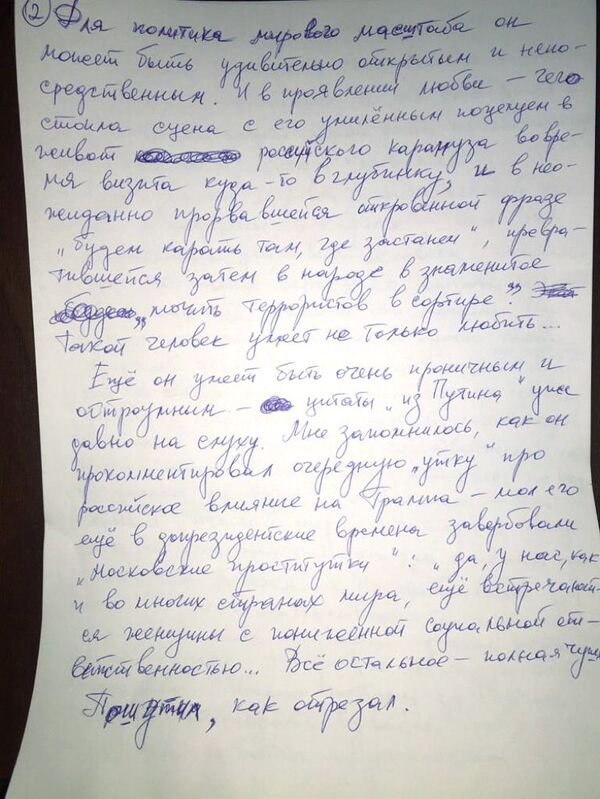 ② Для политика мирового масштаба он
может быть удивительно открытым и непо-
средственным. И в проявлении любви – чего
стоила сцена с его умилённым поцелуем в
живот российского карапуза во вре-
мя визита куда-то в глубинку, и в нео-
жиданно прорвавшейся откровенной фразе
„будем карать там, где застанем“, превра-
тившейся затем в народе в знаменитое
„мочить террористов в сортире“.
Такой человек умеет не только любить...
Ещё он умеет быть очень ироничным и
остроумным – цитаты „из Путина“ уже
давно на слуху. Мне запомнилось, как он
прокомментировал очередную „утку“ про
российское влияние на Трампа – мол его
ещё в допрезидентские времена завербовали
„московские проститутки“: „да, у нас, как
и во многих странах мира, ещё встречают-
ся женщины с пониженной социальной от-
ветственностью... Всё остальное – полная чушь
Пошутил, как отрезал.